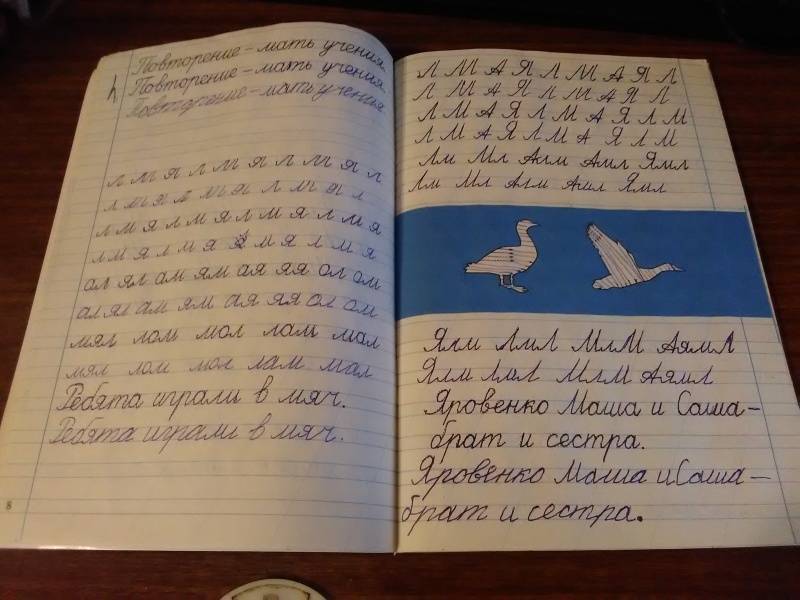 Повторение – мать учения.
Повторение – мать учения.
Повторение – мать учения.
л м я л м я л м м я л
л м я л м я л м я л
л м я л м я л м я л м я
л м я л м я л м я л м я
ал ял ам ям ая яя ол ом
ал ял ам ям ая яя ол ом
мял лом мол лам мал
мял лом мол лам мал
Ребята играли в мяч.
Ребята играли в мяч.
8
Л М А Я Л М А Я Л
Л М А Я Л М А Я Л
Л М А Я Л М А Я Л М
Л М А Я Л М А Я Л М
Лм Мл Алм Амл Ямл
Лм Мл Алм Амл Ямл
Ялм ЛмЛ МлМ АямЛ
Ялм ЛмЛ МлМ АямЛ
Яровенко Маша и Саша –
брат и сестра.
Яровенко Маша и Саша –
брат и сестра.